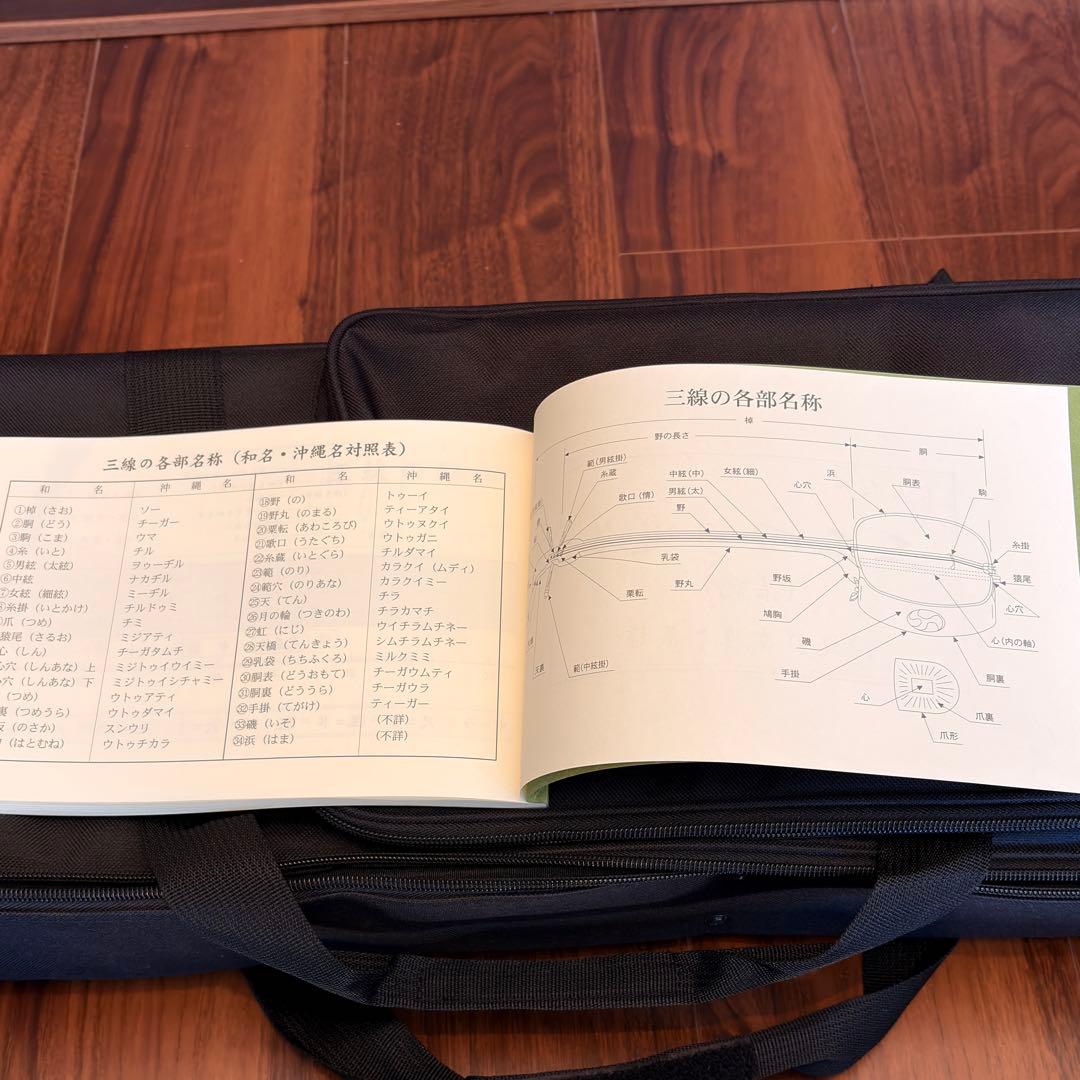 三線の各部名称（和名・沖縄名対照表）
和　名　沖　縄　名　和　名　沖　縄　名
①棹（さお）　ソー
②胴（どう）　チーガー
③駒（こま）　ウマ
④糸（いと）　チル
⑤男絃（太絃）　ヲゥーヂル
⑥中絃　ナカヂル
女絃（細絃）　ミーヂル
糸掛（いとかけ）　チルドゥミ
爪（つめ）　チミ
猿尾（さるお）　ミジアティ
心（しん）　チーガタムチ
心穴（しんあな）上　ミジトゥイウイミー
穴（しんあな）下　ミジトゥイシチャミー
（つめ）　ウトゥアティ
裏（つめうら）　ウトゥダマイ
坂（のさか）　スンウリ
（はとむね）　ウトゥチカラ
⑱野（の）　トゥーイ
⑲野丸（のまる）　ティーアタイ
⑳栗転（あわころび）　ウトゥヌクイ
㉑歌口（うたぐち）　ウトゥガニ
㉒糸蔵（いとぐら）　チルダマイ
㉓範（のり）　カラクイ（ムディ）
㉔範穴（のりあな）　カラクイミー
㉕天（てん）　チラ
㉖月の輪（つきのわ）　チラカマチ
㉗虹（にじ）　ウイチラムチネー
㉘天橋（てんきょう）　シムチラムチネー
㉙乳袋（ちちふくろ）　ミルクミミ
㉚胴表（どうおもて）　チーガウムティ
㉛胴裏（どううら）　チーガウラ
㉜手掛（てがけ）　ティーガー
㉝磯（いそ）　（不詳）
㉞浜（はま）　（不詳）
三線の各部名称
棹
野の長さ
胴
範（男絃掛）
糸蔵
歌口（情）
中絃（中）
男絃（太）
野
女絃（細）
心穴
浜
胴表
駒
糸掛
猿尾
心穴
乳袋
野丸
栗転
範（中絃掛）
野坂
鳩胸
磯
手掛
心（内の軸）
胴裏
心
爪裏
爪形